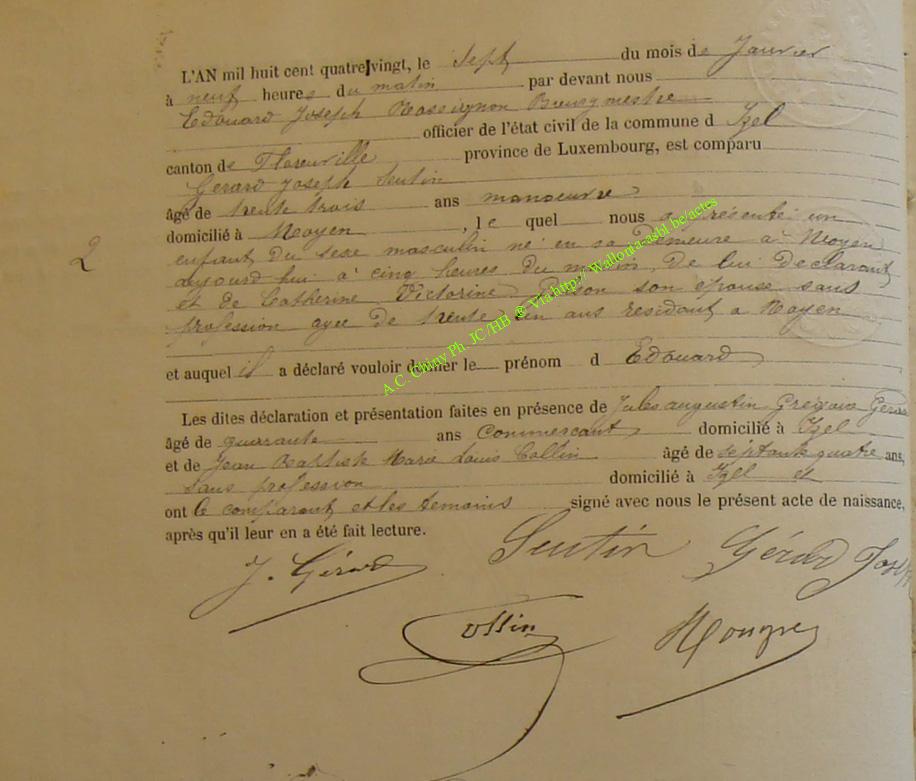 L'AN mil huit cent quatre vingt, le Sept du mois de Janvier
à neuf heures du matin par devant nous
Edouard Joseph Rossignon Bourgmestre
officier de l'état civil de la commune d Izel
canton de Florenville province de Luxembourg, est comparu
Gerard Joseph Sentin
âgé de trente trois ans manoeuvre
domicilié à Moyen, le quel nous a présenté un
enfant du sexe masculin né en sa demeure à Moyen
aujourd'hui à cinq heures du matin, de lui Déclarant
et de Catherine Victorine son épouse sans
profession agée de trente un ans residant a Moyen
2
et auquel il a déclaré vouloir donner le prénom d Edouard
Les dites déclaration et présentation faites en présence de Jules augustin Grégoire Gerard
âgé de quarante ans Commercant domicilié à Izel
et de Jean Baptiste Marie Louis Collin âgé de septante quatre ans,
sans profession domicilié à Izel et
ont le comparant et les temoins signé avec nous le présent acte de naissance,
après qu'il leur en a été fait lecture.
J. Gérard Sentin Gérard Jos
Collin
A.C. Chiny Ph. JC/HB @ Via http://wallonia-asbl.be/actes